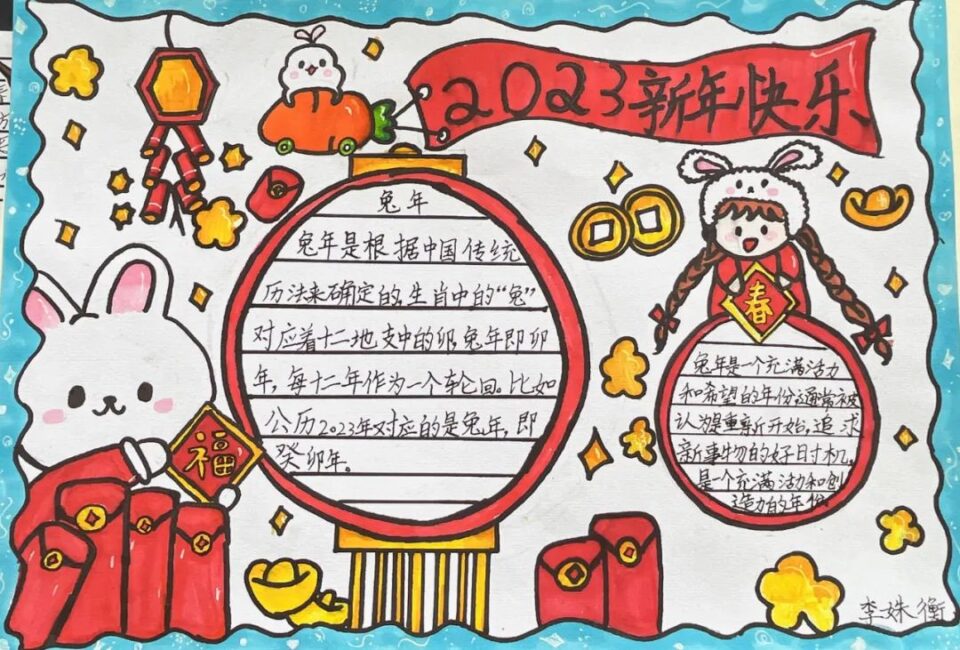 2023新年快乐
兔年
兔年是根据中国传统
历法来确定的,生肖中的“兔”
对应着十二地支中的卯,兔年即卯
年，每十二年作为一个轮回。比如
公历2023年对应的是兔年，即
癸卯年。
福
春
兔年是一个充满活力
和希望的年份,通常被
认为是重新开始,追求
新事物的好时机。
是一个充满活力和创
造力的年份
李姝衡